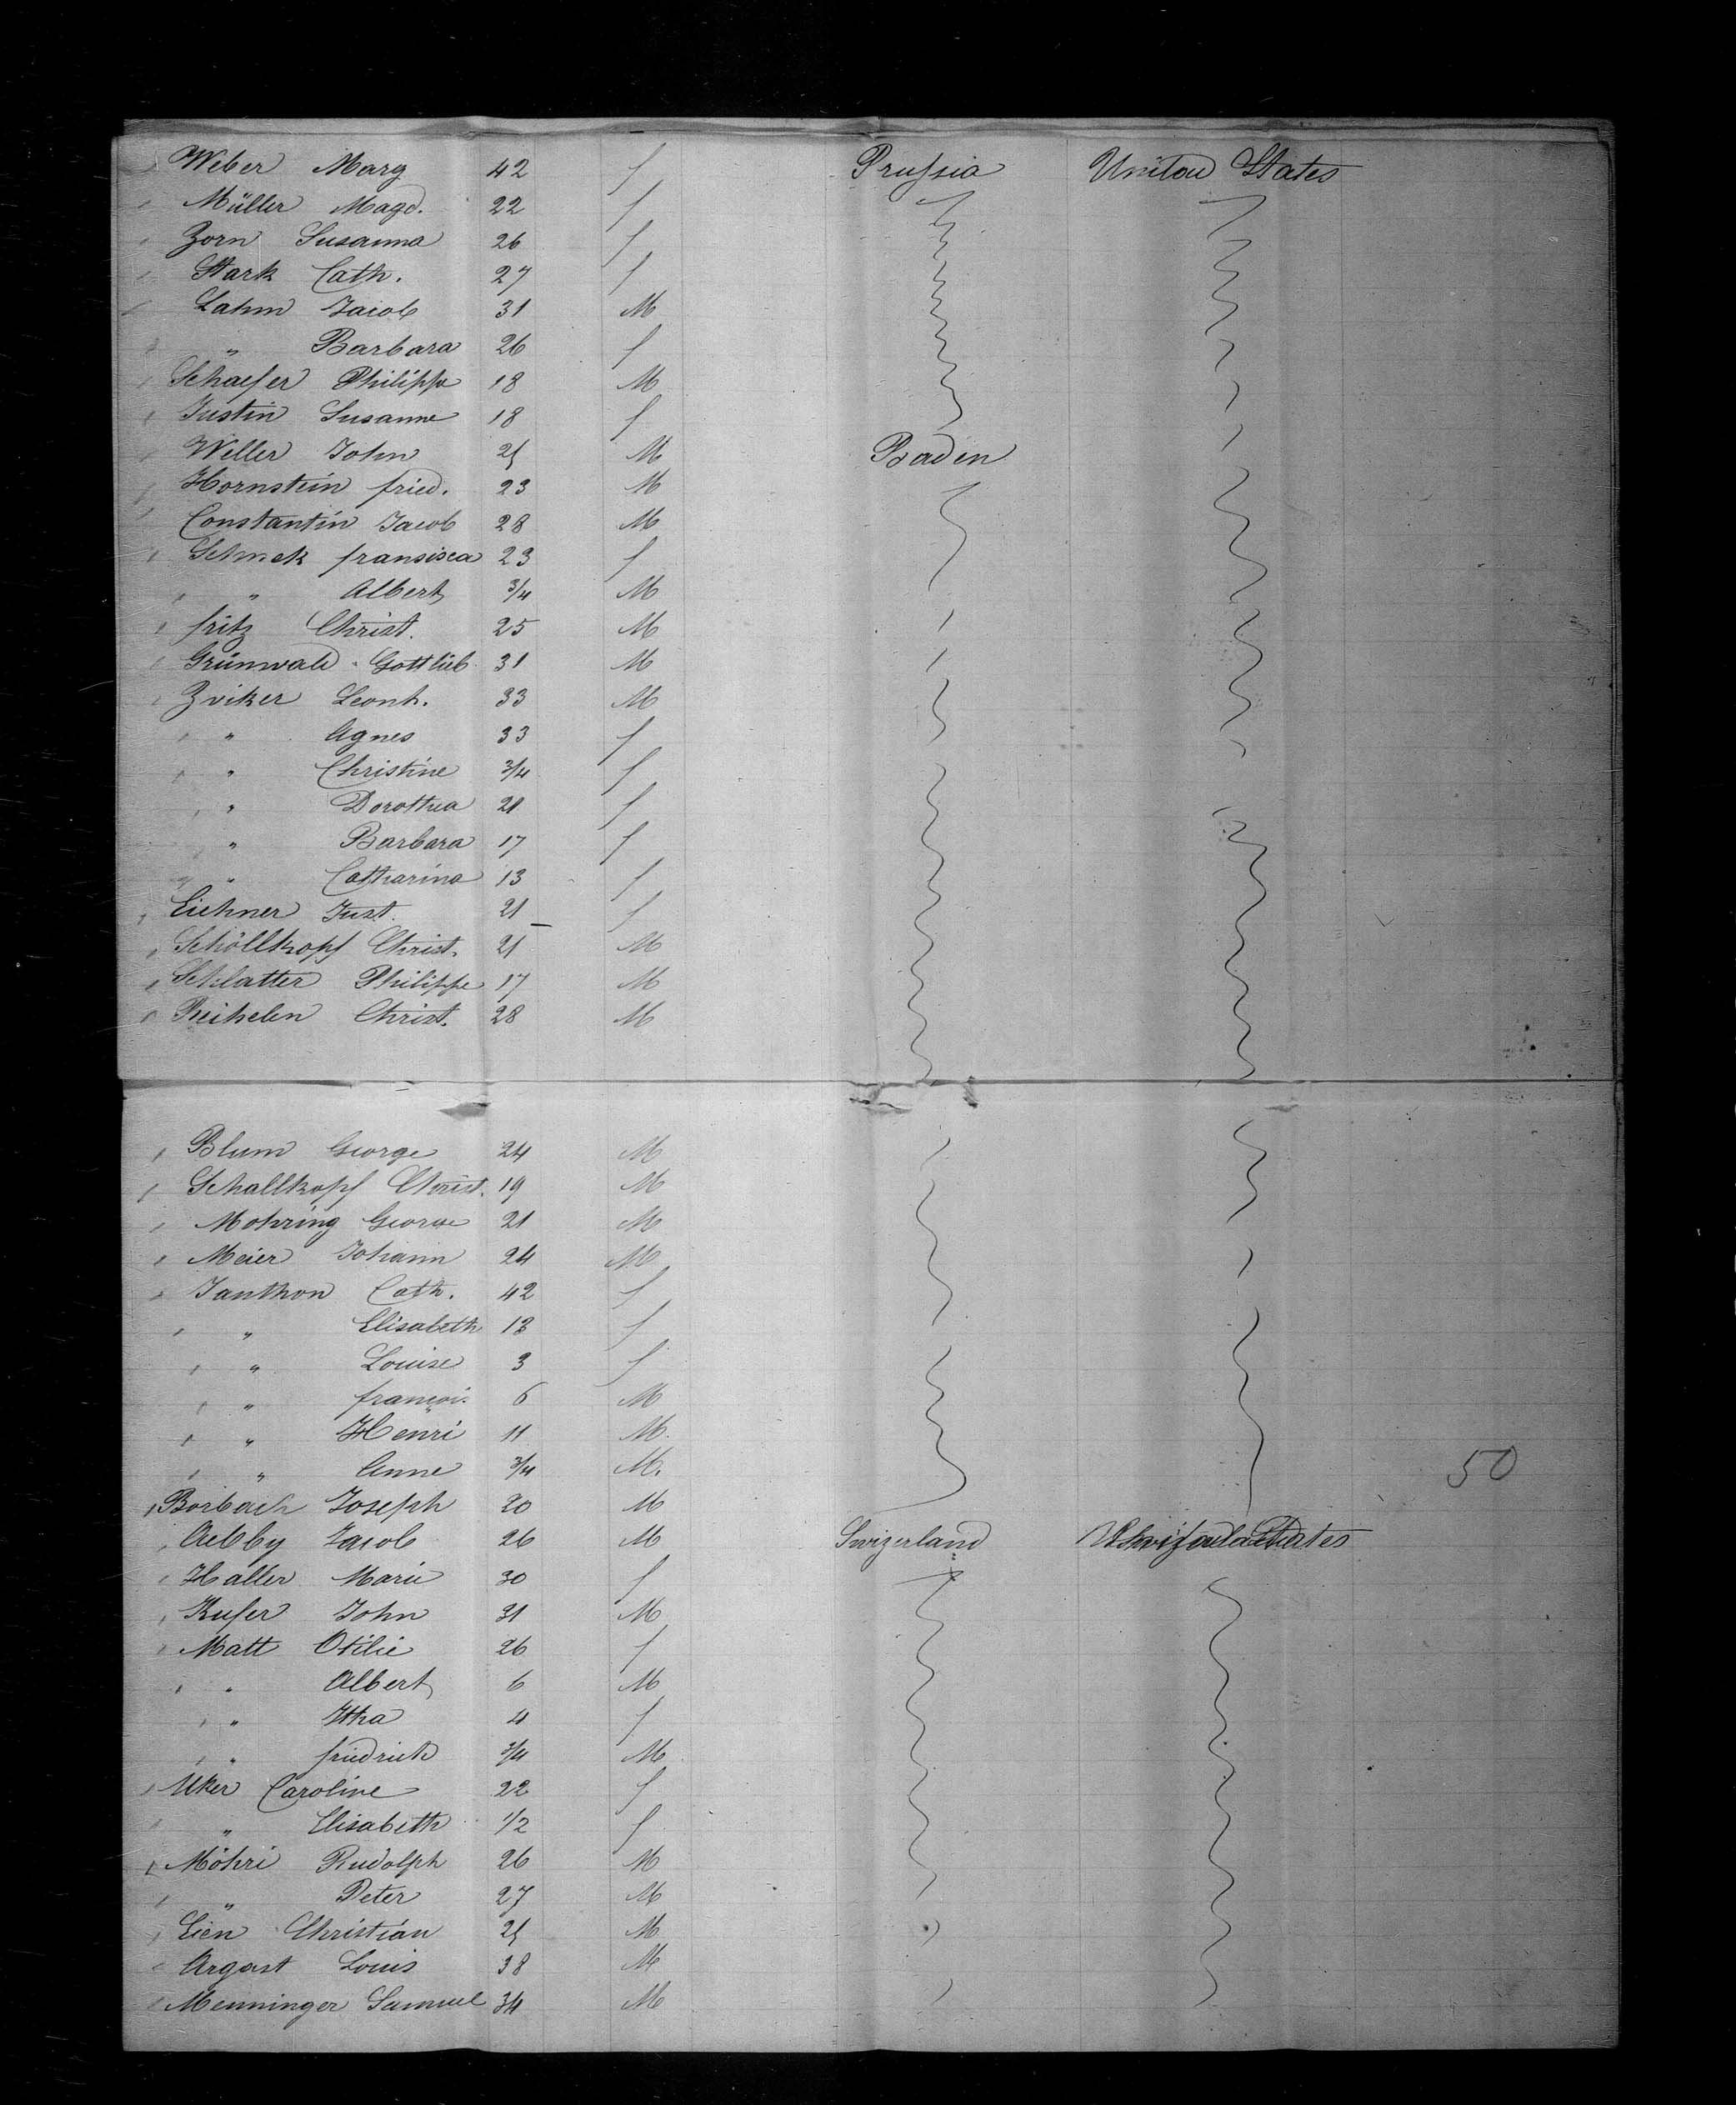 Weber Marg 42 f Prussia United States
Müller Magd. 22 f
Zorn Susanna 26 f
Stark Cath. 27 f
Lahm Jacob 31 M
" Barbara 26 f
Schaefer Philippe 18 M
Justin Susanne 18 f
Weller John 25 M Baden
Hornstein fried. 23 M
Constantin Jacob 28 M
Schmek fransisca 23 f
" Albert 3/4 M
fritz Christ. 25 M
Grünwald Gottlieb 31 M
Zviker Leonh. 33 M
" Agnes 33 f
" Christine 3/4 f
" Dorothea 21 f
" Barbara 17 f
" Catharina 13 f
Eichner Just. 21 f
Schöllkopf Christ. 21 M
Schlatter Philippe 17 M
Reihelen Christ. 28 M
Blum George 24 M
Schallkopf Christ. 19 M
Mohring George 21 M
Meier Johann 24 M
Janthon Cath. 42 f
" Elisabeth 13 f
" Louise 3 f
" françois 6 M
" Henri 11 M.
" Anne 3/4 M. 50
Borbach Joseph 20 M
Aebby Jacob 26 M Swizerland States
Haller Marie 30 f
Kufer John 31 M
Matt Otilie 26 f
" Albert 6 M
" Itha 4 f
" friedrich 3/4 M
Uker Caroline 22 f
" Elisabeth 1/2 f
Möhri Rudolph 26 M
" Peter 27 M
Eien Christian 25 M
Argast Louis 38 M
Menninger Samuel 34 M